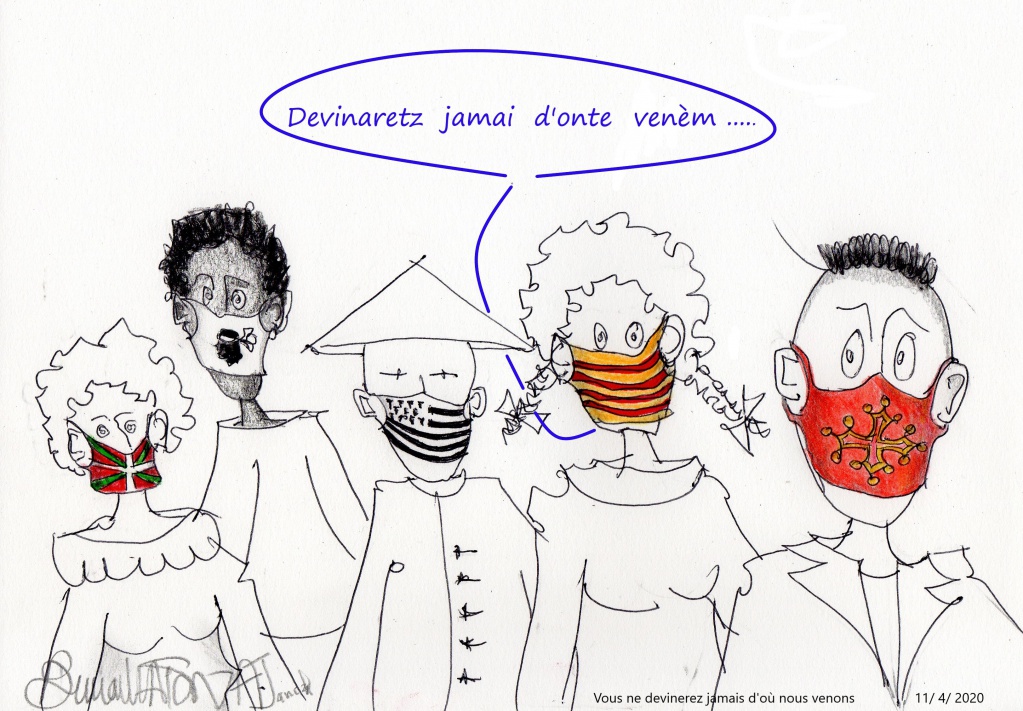 Devinaretz jamai d'onte venèm .....
Vous ne devinerez jamais d'où nous venons
11/ 4/ 2020